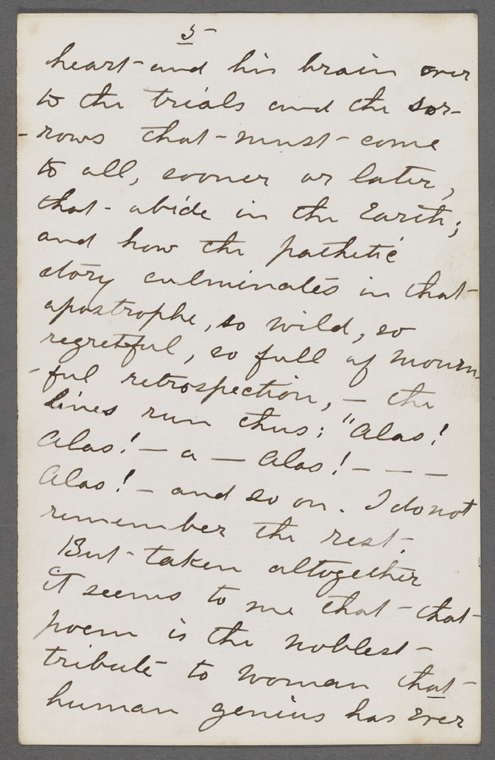 5
heart and his brain over
to the trials and the sor-
-rows that must come
to all, sooner or later,
that abide in the Earth;
and how the pathetic
story culminates in that
apostrophe, so wild, so
regretful, so full of mourn-
-ful retrospection, — the
lines run thus: "Alas!
Alas! — a — Alas! — — —
Alas! — and so on. I do not
remember the rest.
But taken altogether
it seems to me that that
poem is the noblest
tribute to woman that
human genius has ever